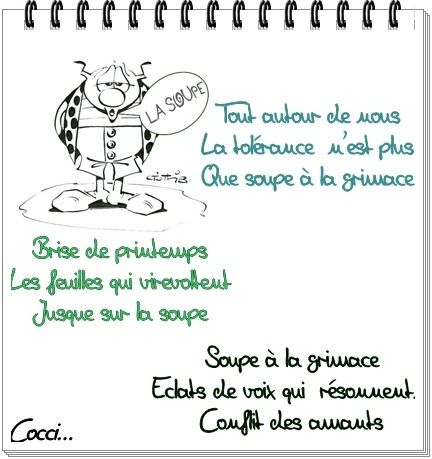 LA SOUPE
Tout autour de nous
La tolérance n'est plus
Que soupe à la grimace
Brise de printemps
Les feuilles qui virevoltent
Jusque sur la soupe
Soupe à la grimace
Eclats de voix qui résonnent.
Conflit des amants
Cocci...